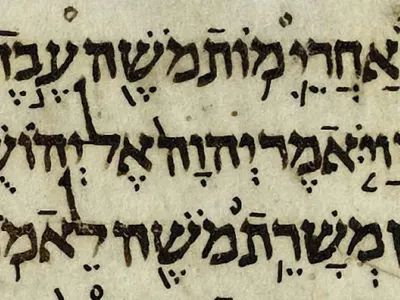 אַחֲרֵי֙ מ֥וֹת מֹשֶׁ֖ה עֶ֣בֶד
וַיֹּ֤אמֶר יְהוָה֙ אֶל־יְהוֹשֻׁ
ן מְשָׁרֵ֥ת מֹשֶׁ֖ה לֵאמֹ